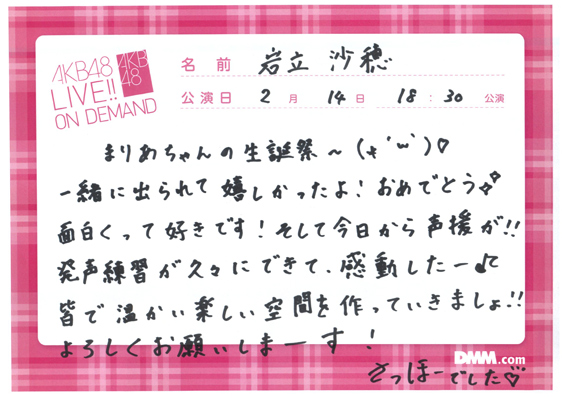 AKB48
LIVE!!
ON DEMAND
AKB
48
名前 岩立 沙穂
公演日 2月 14日 18:30 公演
まりあちゃんの生誕祭~(*'ω')♡
一緒に出られて嬉しかったよ!おめでとう
面白くって好きです!そして今日から声援が!!
発声練習が久々にできて、感動したー♪
皆で温かい楽しい空間を作っていきましょ!!
よろしくお願いしまーす!
DMM.com
さっほーでした♡